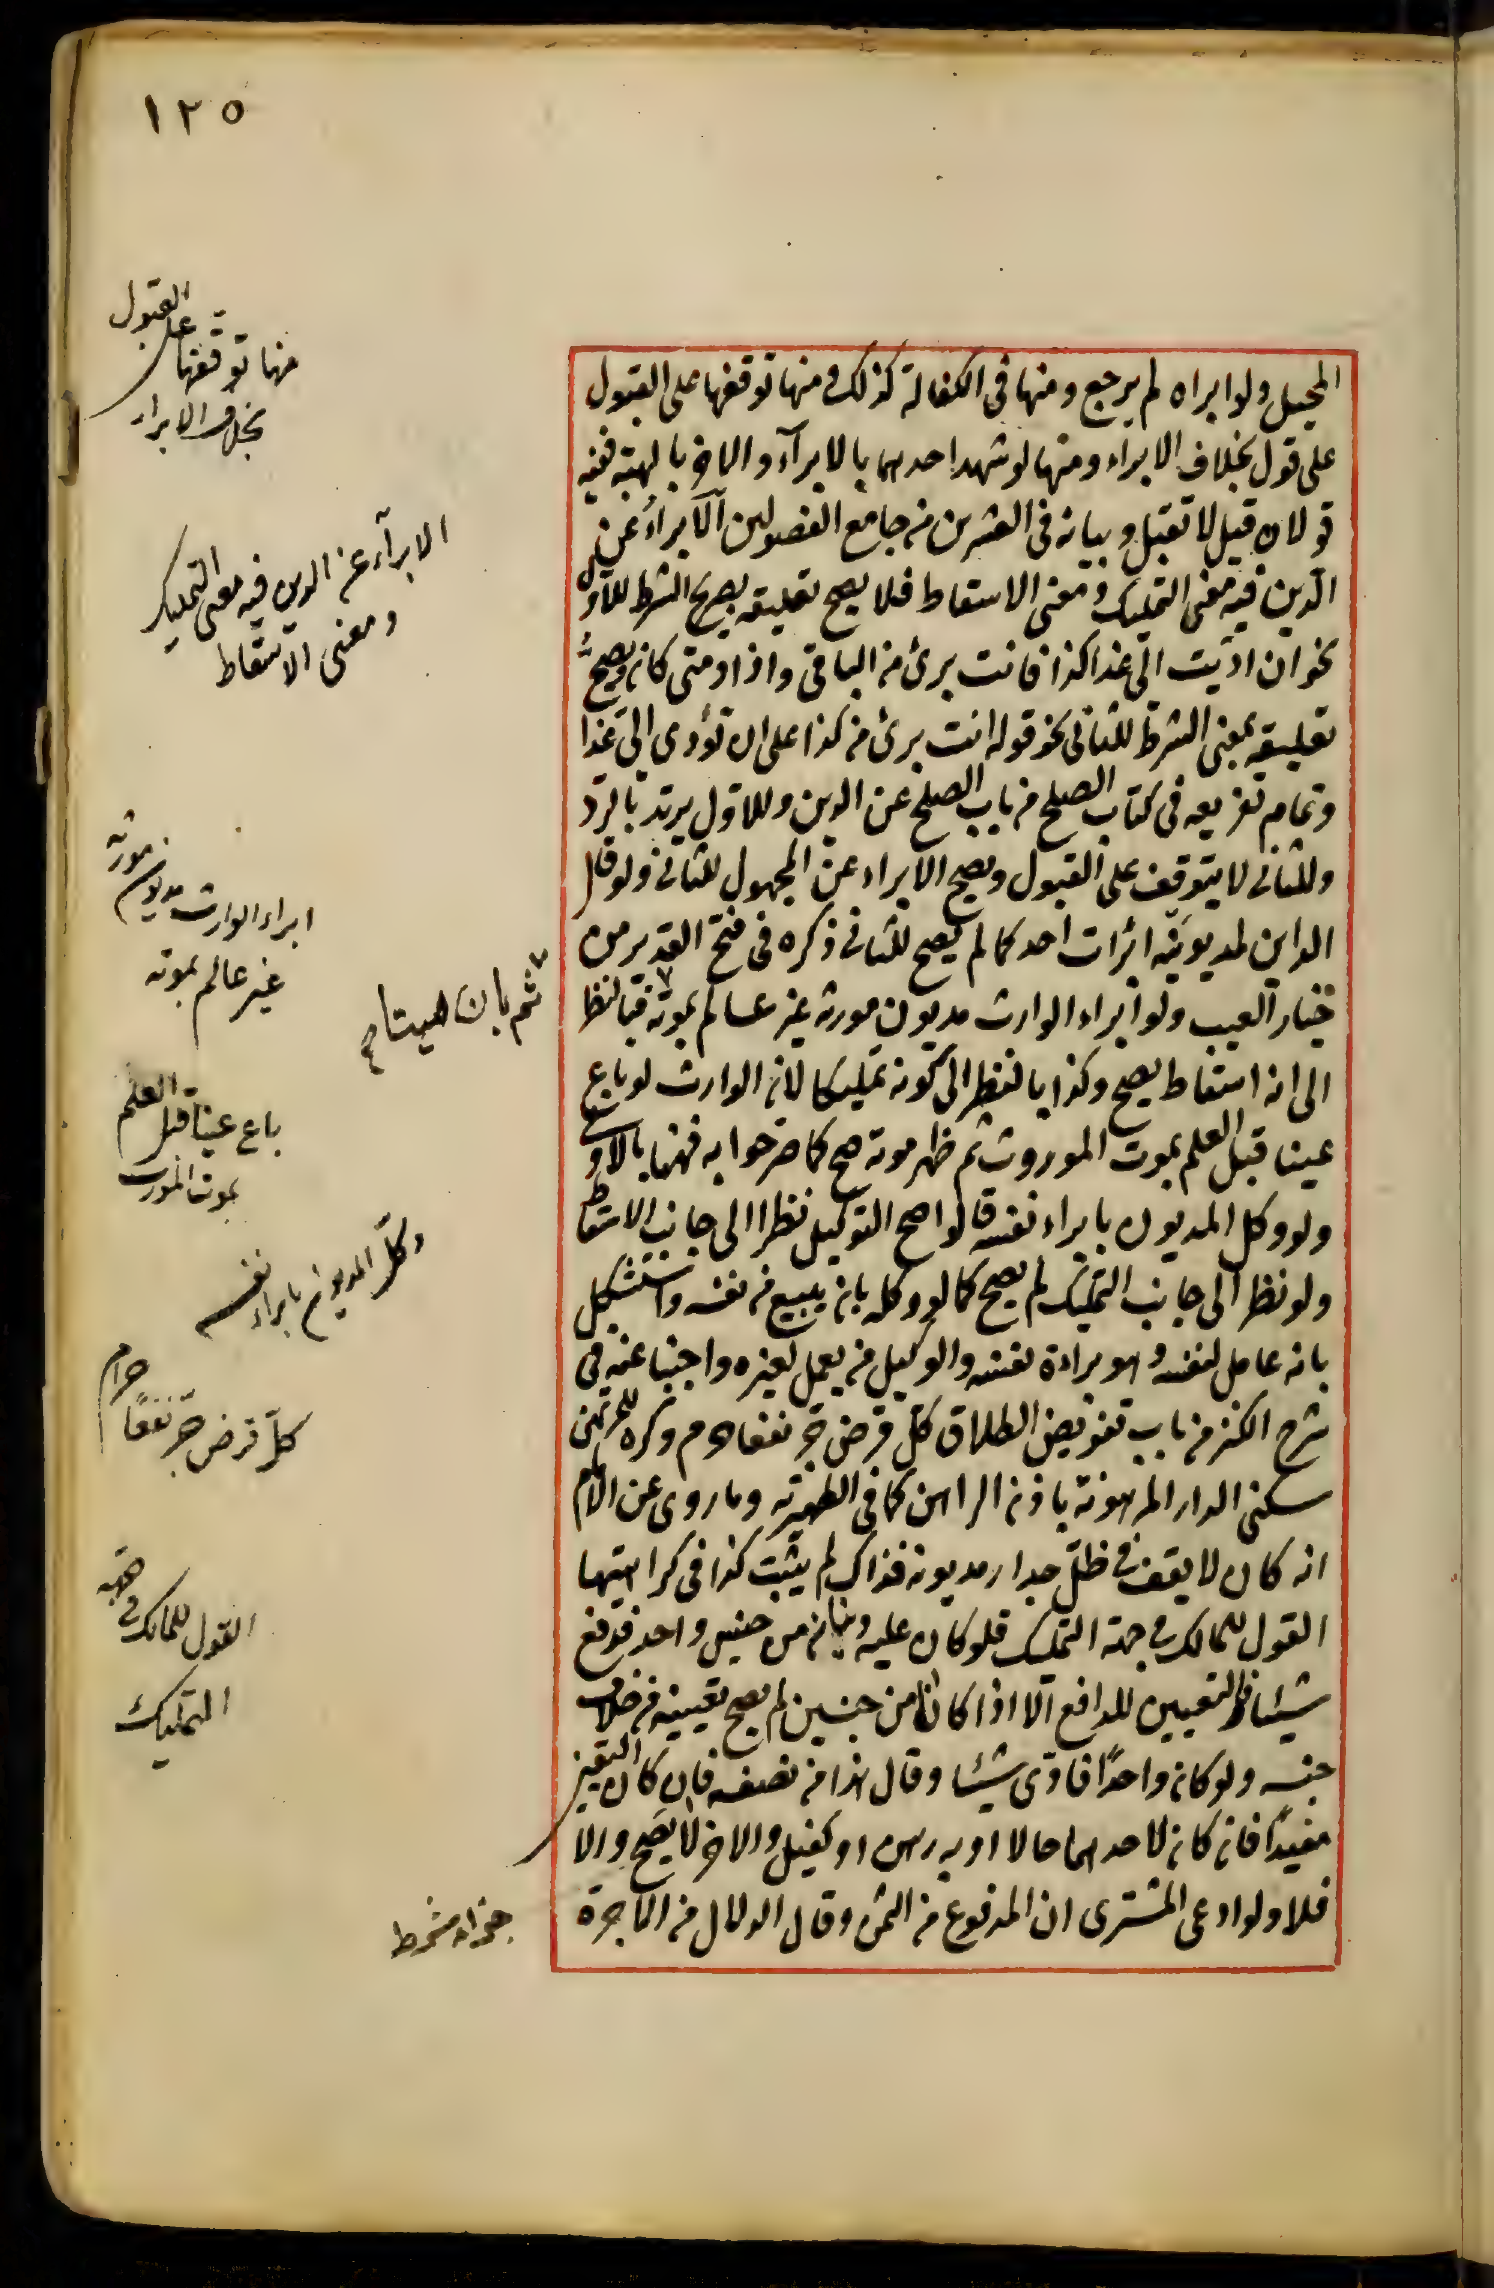 ١٢٥
المحيل ولو ابراه لم يرجع ومنها فى الكفالة كذلك ومنها توقفها على القبول
على قول بخلاف الابراء ومنها لو شهد احدهما بالابرآء والاخر بالهبة ففيه
قولان قيل لا تقبل وبيانه فى العشرين من جامع الفصولين الابراء عن
الدين فيه معنى التمليك ومعنى الاسقاط فلا يصح تعليقه بصريح الشرط للاول
نحو ان اديت الىّ غدا كذا فانت برئ من الباقى واذا ومتى كان ويصح
تعليقه بمعنى الشرط للثانى نحو قوله انت برئ من كذا على ان تؤدى الىّ غدا
وتمام تفريعه فى كتاب الصلح من باب الصلح عن الدين وللاول يرتد بالرد
وللثانى لا يتوقف على القبول ويصح الابراء عن المجهول للثانى ولو قال
الداين لمديونيه ابرات احدكما لم يصح للثانى ذكره فى فتح القدير من
خيار العيب ولو ابراء الوارث مديون مورثه غير عالم بموته فبالنظر
الى انه اسقاط يصح وكذا بالنظر الى كونه تمليكا لان الوارث لو باع
عينا قبل العلم بموت الموروث ثم ظهر موته صح كما صرحوا به فهنا بالاولى
ولو وكل المديون بابراء نفسه قالوا صح التوكيل نظرا الى جانب الاسقاط
ولو نظر الى جانب التمليك لم يصح كما لو وكله بان يبيع من نفسه واستشكل
بانه عامل لنفسه وهو براءة نفسه والوكيل من يعمل لغيره واجبنا عنه فى
شرح الكنز من باب تفويض الطلاق كل قرض جر نفعا حرام وكره للمرتهن
سكنى الدار المرهونة باذن الراهن كما فى الظهيرية وما روى عن الامام
انه كان لا يقف فى ظل جدار مديونه فذاك لم يثبت كذا فى كراهيتها
القول للمالك فى جهة التمليك فلو كان عليه دينان من جنس واحد فدفع
شيئا فالتعيين للدافع الا اذا كانا من جنسين لم يصح تعيينه من خلاف
جنسه ولو كان واحدا فادى شيئا وقال هذا من نصفه فان كان التعيين
مفيدا فان كان لاحدهما حالا او به رهن او كفيل والاخر لا يصح والا
فلا ولو ادعى المشترى ان المدفوع من الثمن وقال الدلال من الاجرة
منها توقفها على القبول
بخلاف الابراء
الابرآء عن الدين فيه معنى التمليك
ومعنى الاسقاط
ابراء الوارث مديون مورثه
غير عالم بموته
ثم بان ميتا صح
باع عينا قبل العلم
بموت المورث
وكل المديون بابراء نفسه
كل قرض جر نفعا حرام
القول للمالك فى جهة
التمليك